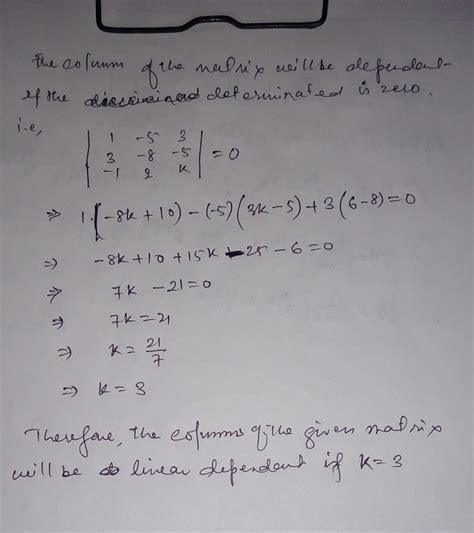 The column of the matrix will be dependent
if the determinated is zero.
i.e,
| 1 -5 3 |
| 3 -8 -5 | = 0
| -1 2 k |
⇒ 1·(-8k + 10) - (-5)(3k - 5) + 3(6 - 8) = 0
⇒ -8k + 10 + 15k - 25 - 6 = 0
⇒ 7k - 21 = 0
⇒ 7k = 21
⇒ k = 21/7
⇒ k = 3
Therefore, the columns of the given matrix
will be linear dependent if k = 3